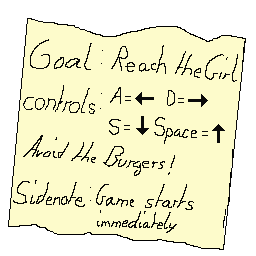 Goal: Reach the Girl
controls: A=← D=→
S=↓ Space=↑
Avoid the Burgers!
Sidenote: Game starts
immediately